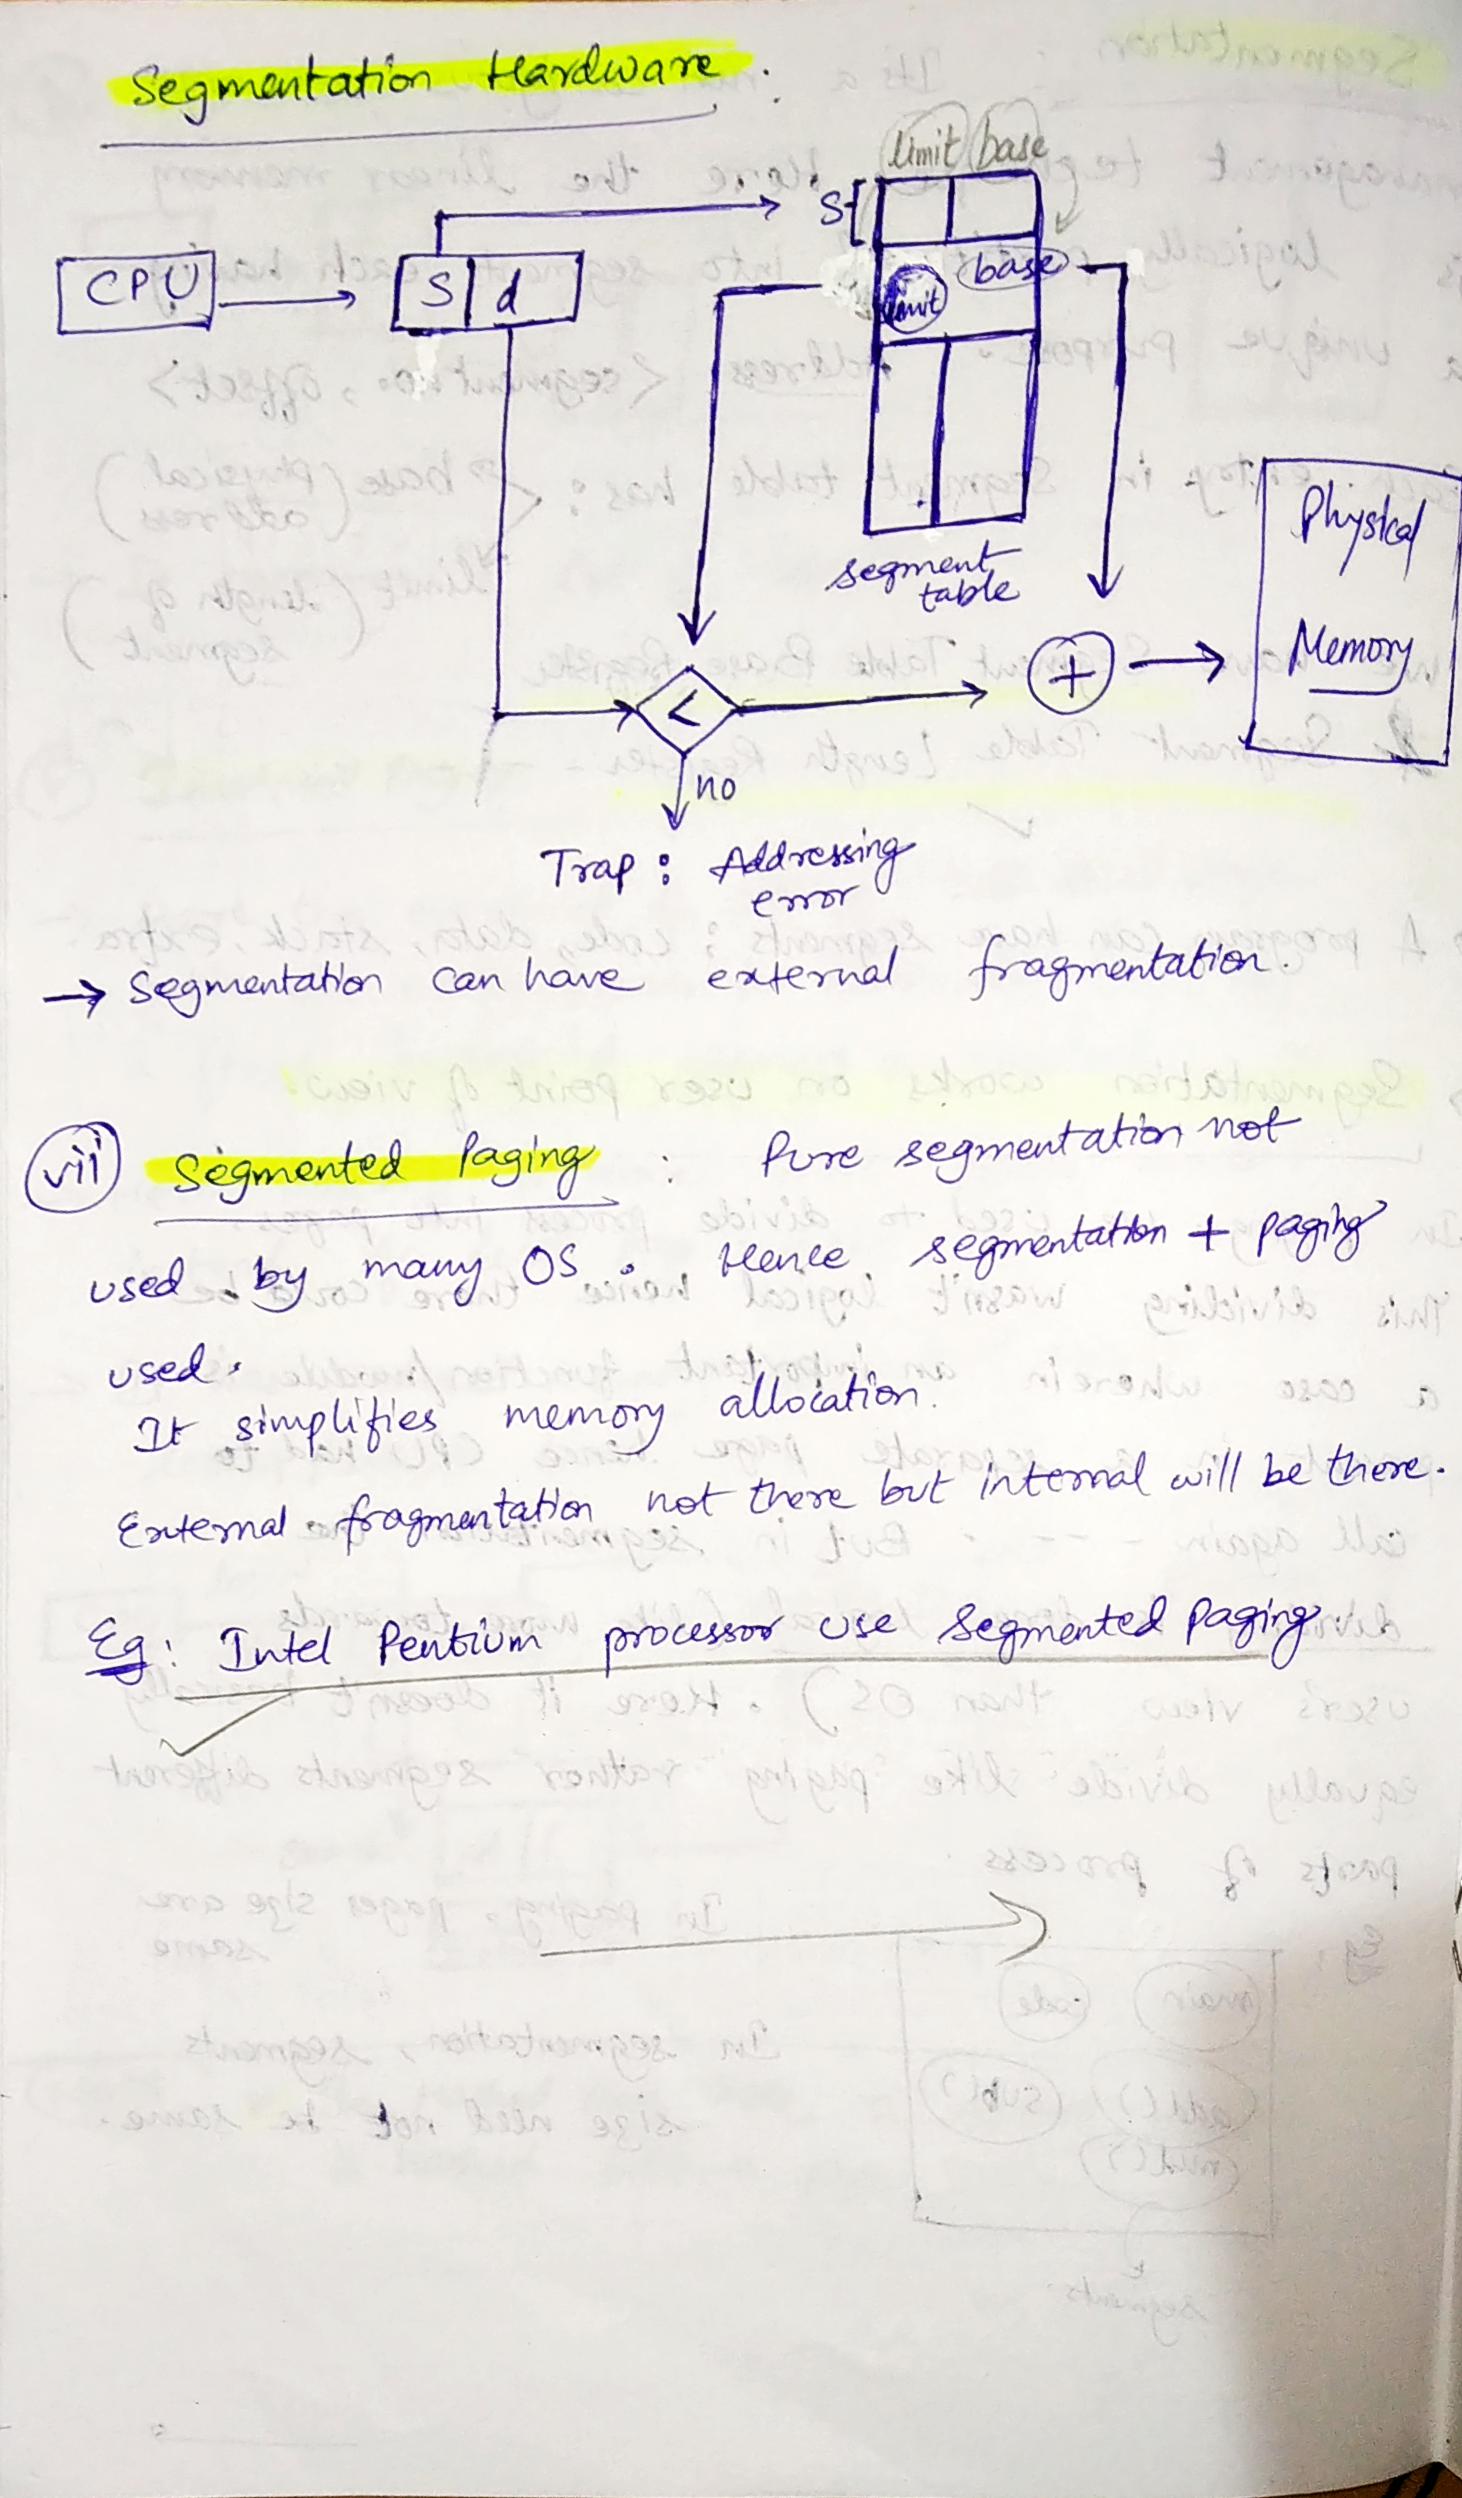 Segmentation Hardware.
limit base
S
CPU
S d
base
limit
segment
table
Physical
Memory
<
+
no
Trap : Addressing
error
→ Segmentation can have external fragmentation.
vii Segmented Paging : Pure segmentation not
used by many OS. Hence segmentation + paging
used.
It simplifies memory allocation.
External fragmentation not there but internal will be there.
Eg: Intel Pentium processor use Segmented Paging.